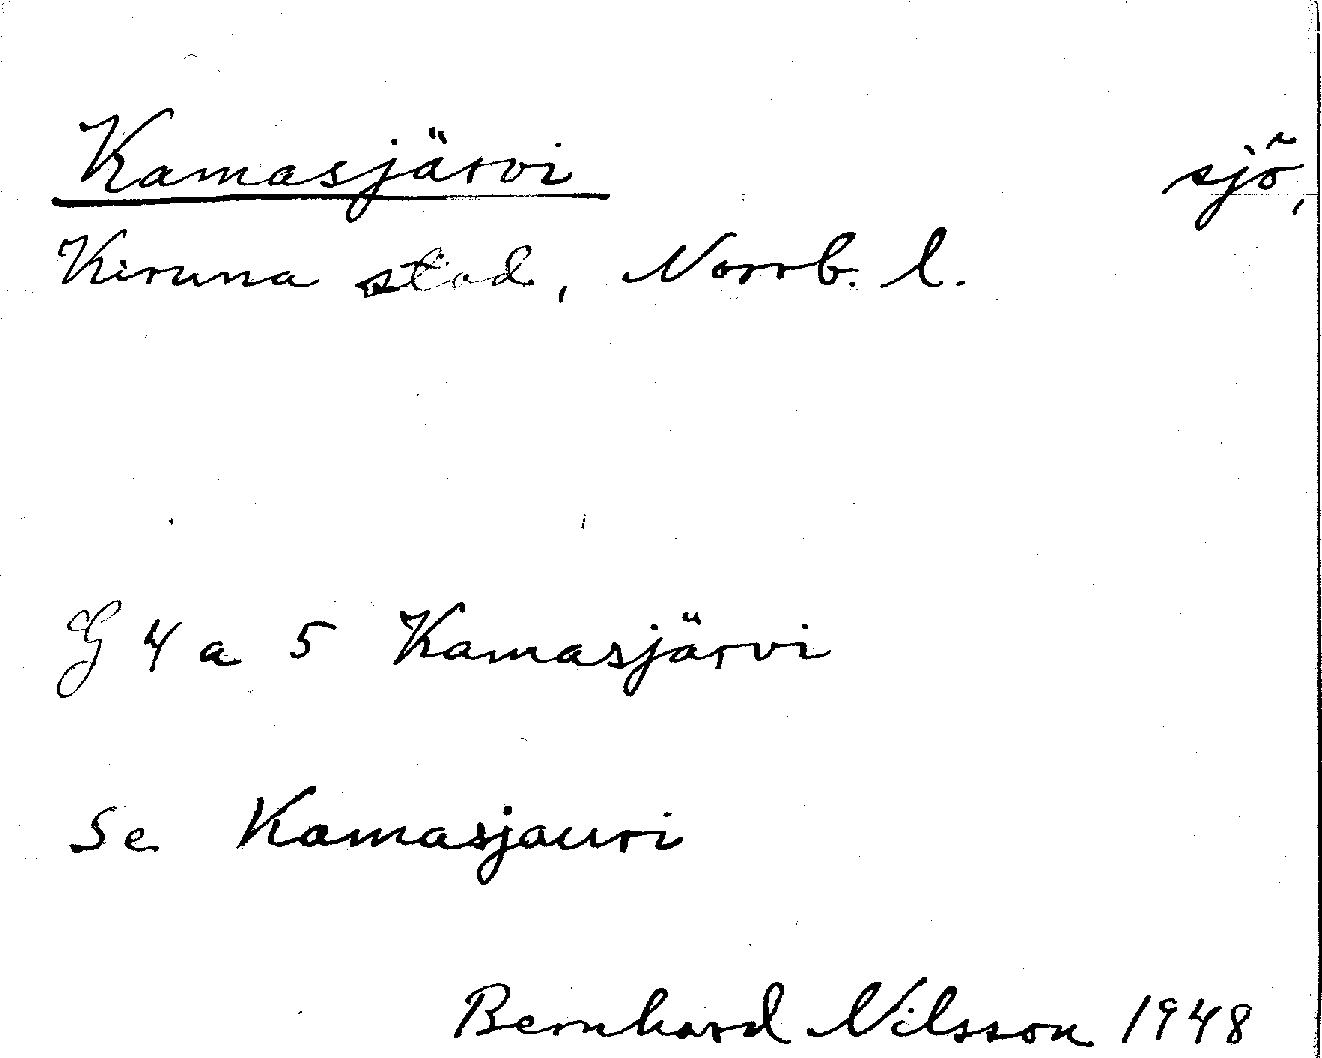 Kamasjärvi sjö,
Kiruna stad, Norrb. l.
G 4 a 5 Kamasjärvi
Se Kamasjauri
Bernhard Nilsson 1948